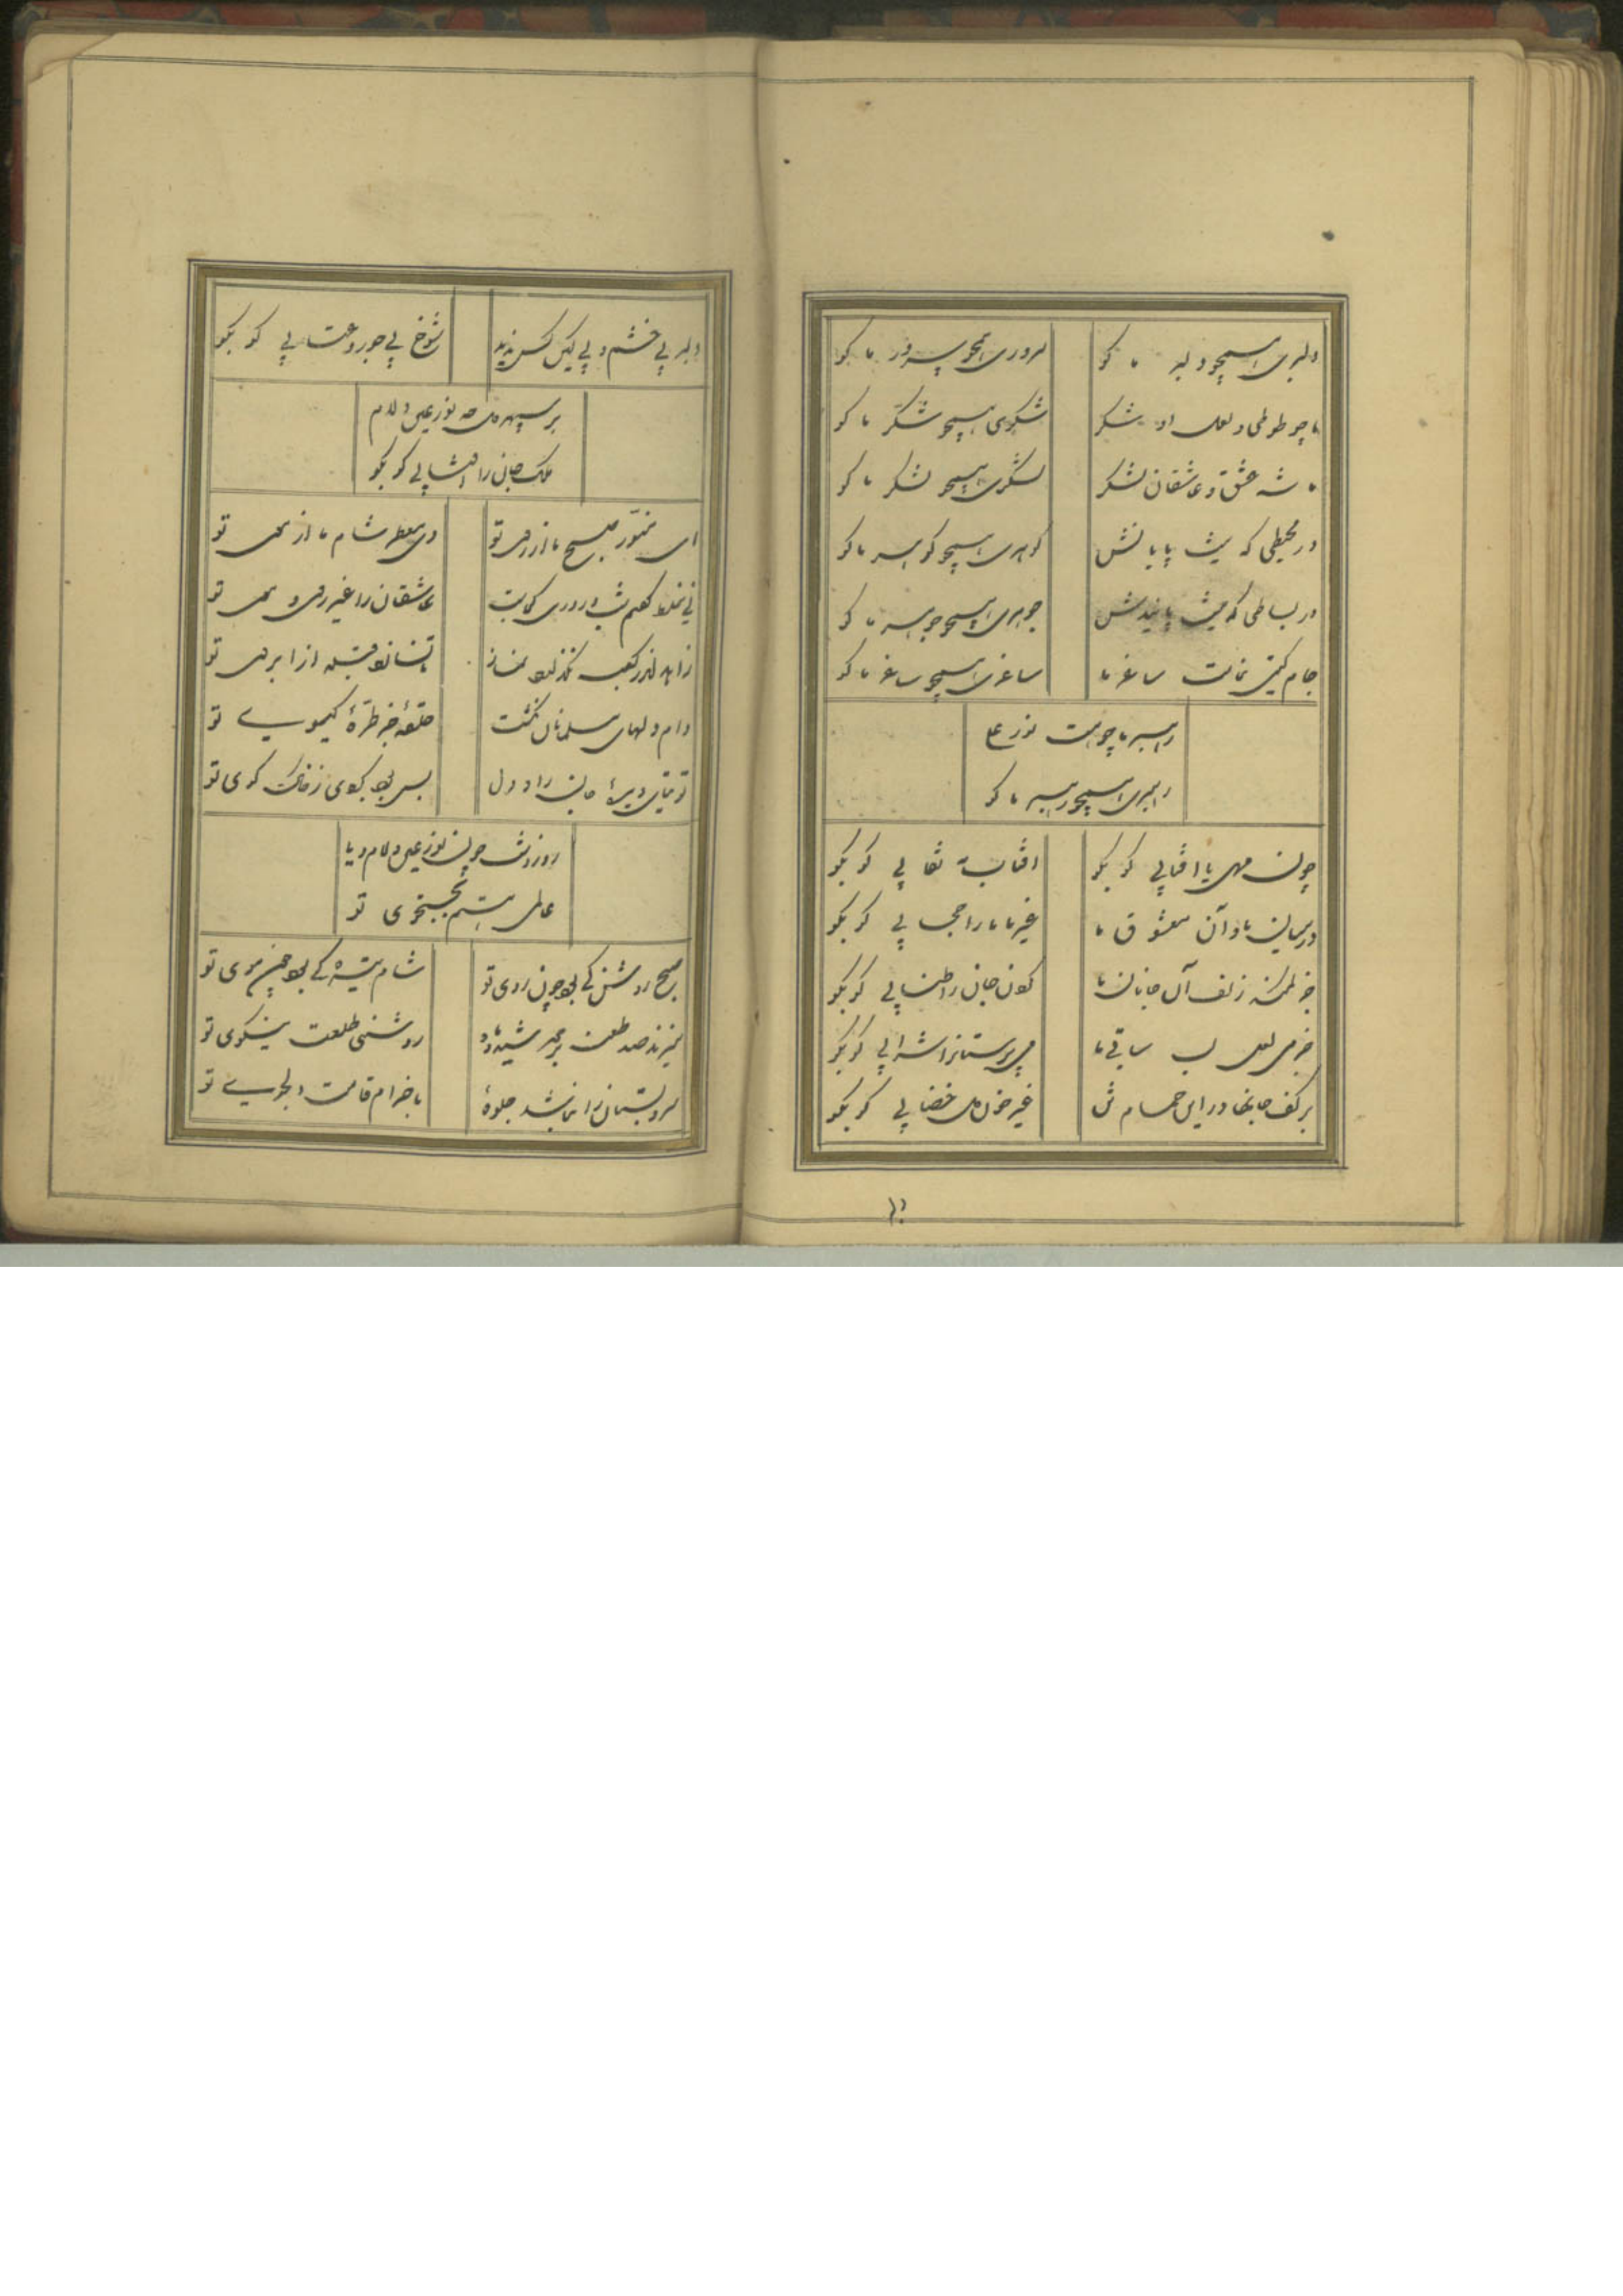 دلبری همچو دلبر ما کو سروری همچو سرور ما کو
ما چو طوطی و لعل او شکر شکری همچو شکر ما کو
ما شه عشق و عاشقان لشکر لشکری همچو لشکر ما کو
در محیطی که نیست پایانش گوهری همچو گوهر ما کو
در بساطی که نیست پایندش جوهری همچو جوهر ما کو
جام گیتی نماست ساغر ما ساغری همچو ساغر ما کو
رهبر ما چو هست نور علی
رهبری همچو رهبر ما کو
چون مهی یا آفتابی کو بگو آفتاب نقابی کو بگو
در میان ما و آن معشوق ما غیر ما ما را حجابی کو بگو
جز کمند زلف آن جانان ما گردن جان را طنابی کو بگو
جز می لعل لب ساقی ما می پرستانرا شرابی کو بگو
بر کف جانها در این غیر خون دل خضابی کو بگو
دلبر بی خشم و بی کین کس ندید شوخ بی جور و عتابی کو بگو
بر سپهر دل چه نور عین و لام
ملک جان را کو بگو
ای منور صبح ما از روی تو وی معطر شام ما از موی تو
نی غلط گفتم شب و روزی کجاست عاشقان را غیر روی و موی تو
زاهد اندر کعبه نگذارد نماز تا نسازد قبله از ابروی تو
دام دلهای مسلمانان نگشت حلقه جز طره گیسوی تو
توتیای دیده جان را و دل بس بود گردی ز خاک کوی تو
روز و شب چون نور عین و لام و یا
عالمی هستیم بجستجوی تو
صبح روشن کی بود چون روی تو شام تیره کی بود چون موی تو
میزند صد طعنه بر خورشید و ماه روشنی طلعت نیکوی تو
سرو بستان را نباشد جلوهٔ با خرام قامت دلجوی تو